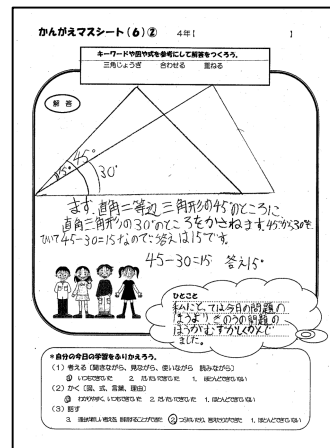 かんがえマスシート(6)② 4年【 】
キーワードや図や式を参考にして解答をつくろう。
三角じょうぎ 合わせる 重ねる
解 答
45°
15°
30°
まず、直角二等辺三角形の45°のところに、
直角三角形の30°のところをかさねます。45°から30°を
ひいて45-30=15なので答えは15°です。
45-30=15 答え15°
ひとこと
私にとっては今日の問題の
ほうより きのうの問題の
ほうがむずかしくかんじ
ました。
*自分の今日の学習をふりかえろう。
(1)考える〔聞きながら、見ながら、使いながら 読みながら〕
③ いつもできていた 2. だいたいできていた 1. ほとんどできていない
(2)かく〔図、式、言葉、理由〕
③ わかりやすく、いつもできていた 2. だいたいできていた 1. ほとんどできていない
(3)話す
② 1. ほとんどできていない